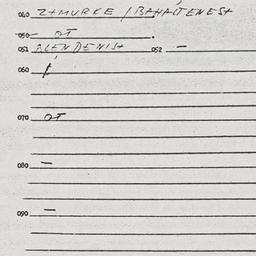 040 ZTMURKE / BAHALTENEST
050 — OT
051 BLENDENIST 052 —
060 /
070 OT
080 —
090 —